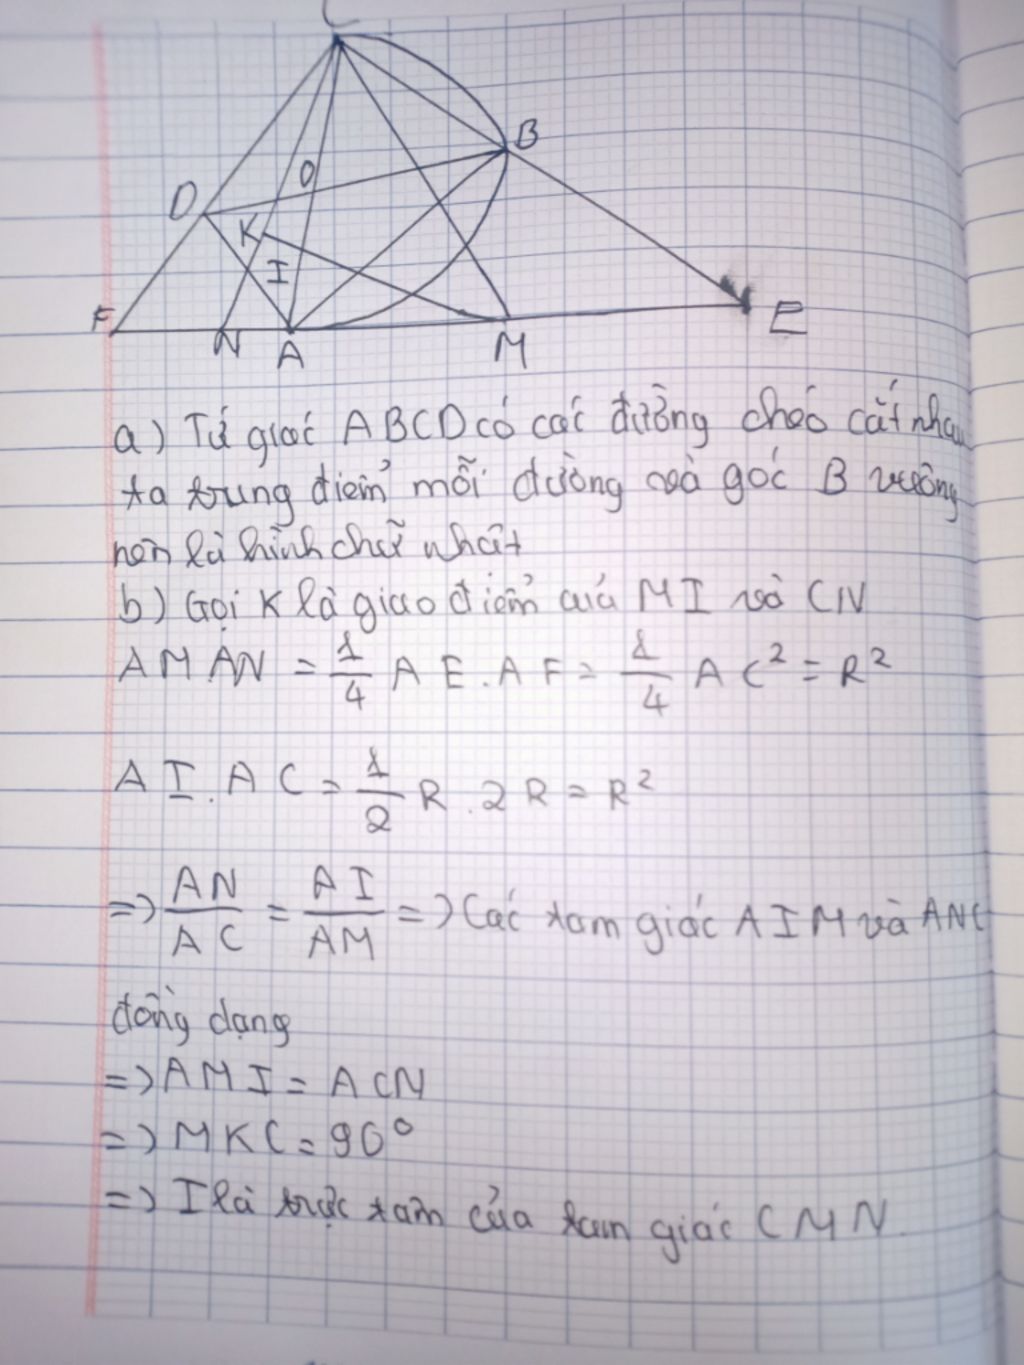 C
B
D
O
K
I
F
N
A
M
E
a) Tứ giác ABCD có các đường chéo cắt nhau
ta trung điểm mỗi đường và góc B vuông
nên là hình chữ nhật
b) Gọi K là giao điểm của MI và CN
AM.AN = 1/4 AE.AF = 1/4 AC² = R²
AI.AC = 1/2 R.2R = R²
=> AN/AC = AI/AM => Các tam giác AIM và ANC
đồng dạng
=> AMI = ACN
=> MKC = 90°
=> I là trực tâm của tam giác CMN.